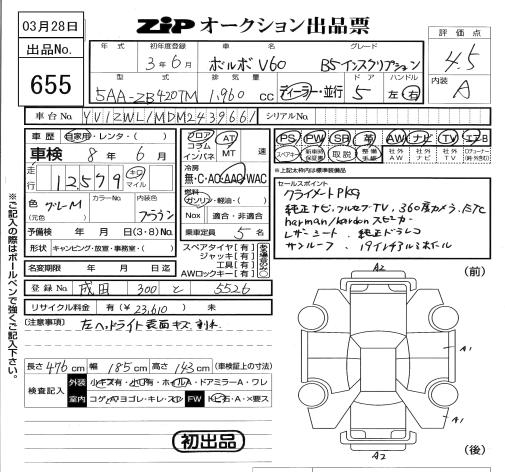 03月28日
ZIP オークション出品票
出品No.
655
評価点
4.5
内装
A
年式 初年度登録 車名 グレード
3年6月 ボルボ V60 B5インスクリプション
型式 排気量 ドア ハンドル
5AA-ZB420TM 1,960 cc ディーラー・並行 5 左・右
車台No. YV1ZWL1MDM2439661 シリアルNo.
車歴 自家用・レンタ・( )
車検 8年6月
走行 12,579 km マイル
色 グレーM (元色) カラーNo. 内装色 ブラウン
予備検 年 月 日(3・8)No.
形状 キャンピング・放置・事務室・( )
名変期限 年 月 日迄
登録No. 成田 300 と 5526
リサイクル料金 有(¥23,610) 未
フロア コラム インパネ AT MT 速
冷房
無・C・AC・AAC・WAC
燃料
ガソリン・軽油・( )
Nox 適合・非適合
乗車定員 5 名
スペアタイヤ[有]
ジャッキ[有]
工具[有]
AWロックキー[有]
PS PW SR 革 AW ナビ TV エアB
スペアキー 新車時保証書 取説 整備手帳 社外AW 社外ナビ 社外TV
※上記は枠内は標準装備品
セールスポイント
クライメートPKG
純正ナビ,フルセグTV,360度カメラ,ETC
harman/kardonスピーカー
レザーシート 純正ドラレコ
サンルーフ 19インチアルミホイール
[注意事項] 左ヘッドライト表面キズ 割れ
長さ 476 cm 幅 185 cm 高さ 143 cm (車検証上の寸法)
検査記入 外装 小キズ有・小凹有・ホイルA・ドアミラーA・ワレ
室内 コゲ・A・ヨゴレ・キレ・スレ FW トビ石・A・×要ス
初出品
(前)
A2
A1
A1
A2
(後)
※ご記入の際はボールペンで強くご記入下さい。